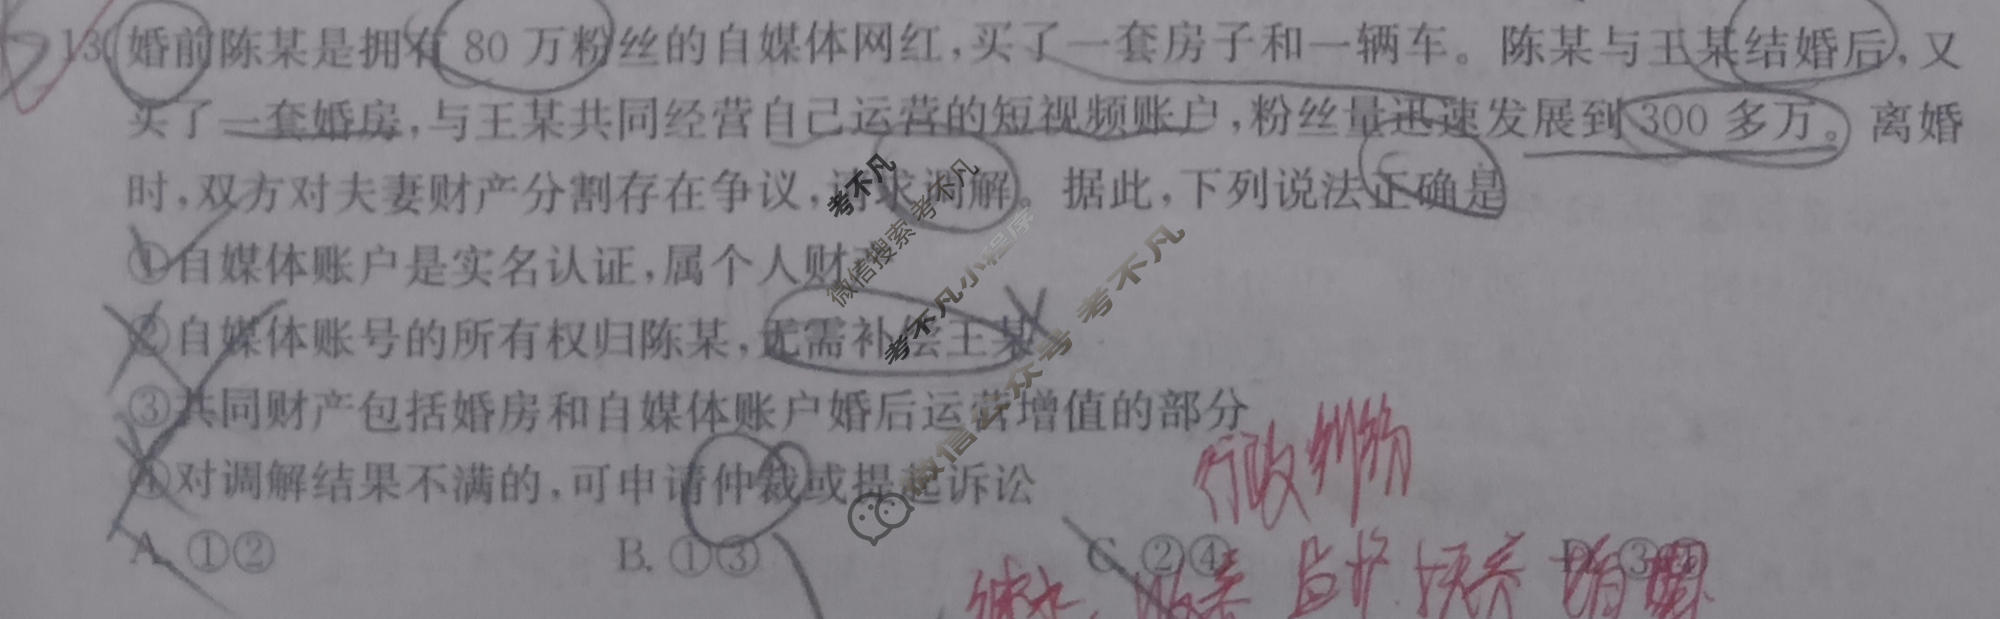 13. 婚前陈某是拥有 80 万粉丝的自媒体网红,买了一套房子和一辆车。陈某与王某结婚后,又
买了一套婚房,与王某共同经营自己运营的短视频账户,粉丝量迅速发展到 300 多万。离婚
时,双方对夫妻财产分割存在争议,求调解。据此,下列说法正确是
①自媒体账户是实名认证,属个人财
②自媒体账号的所有权归陈某,无需补偿王某
③共同财产包括婚房和自媒体账户婚后运营增值的部分
④对调解结果不满的,可申请仲裁或提起诉讼
行政纠纷
A. ①②
B. ①③
C. ②④
D. ③④
监护 扶养 婚姻
考不凡
微信搜索 考不凡
考不凡小程序
微信公众号 考不凡